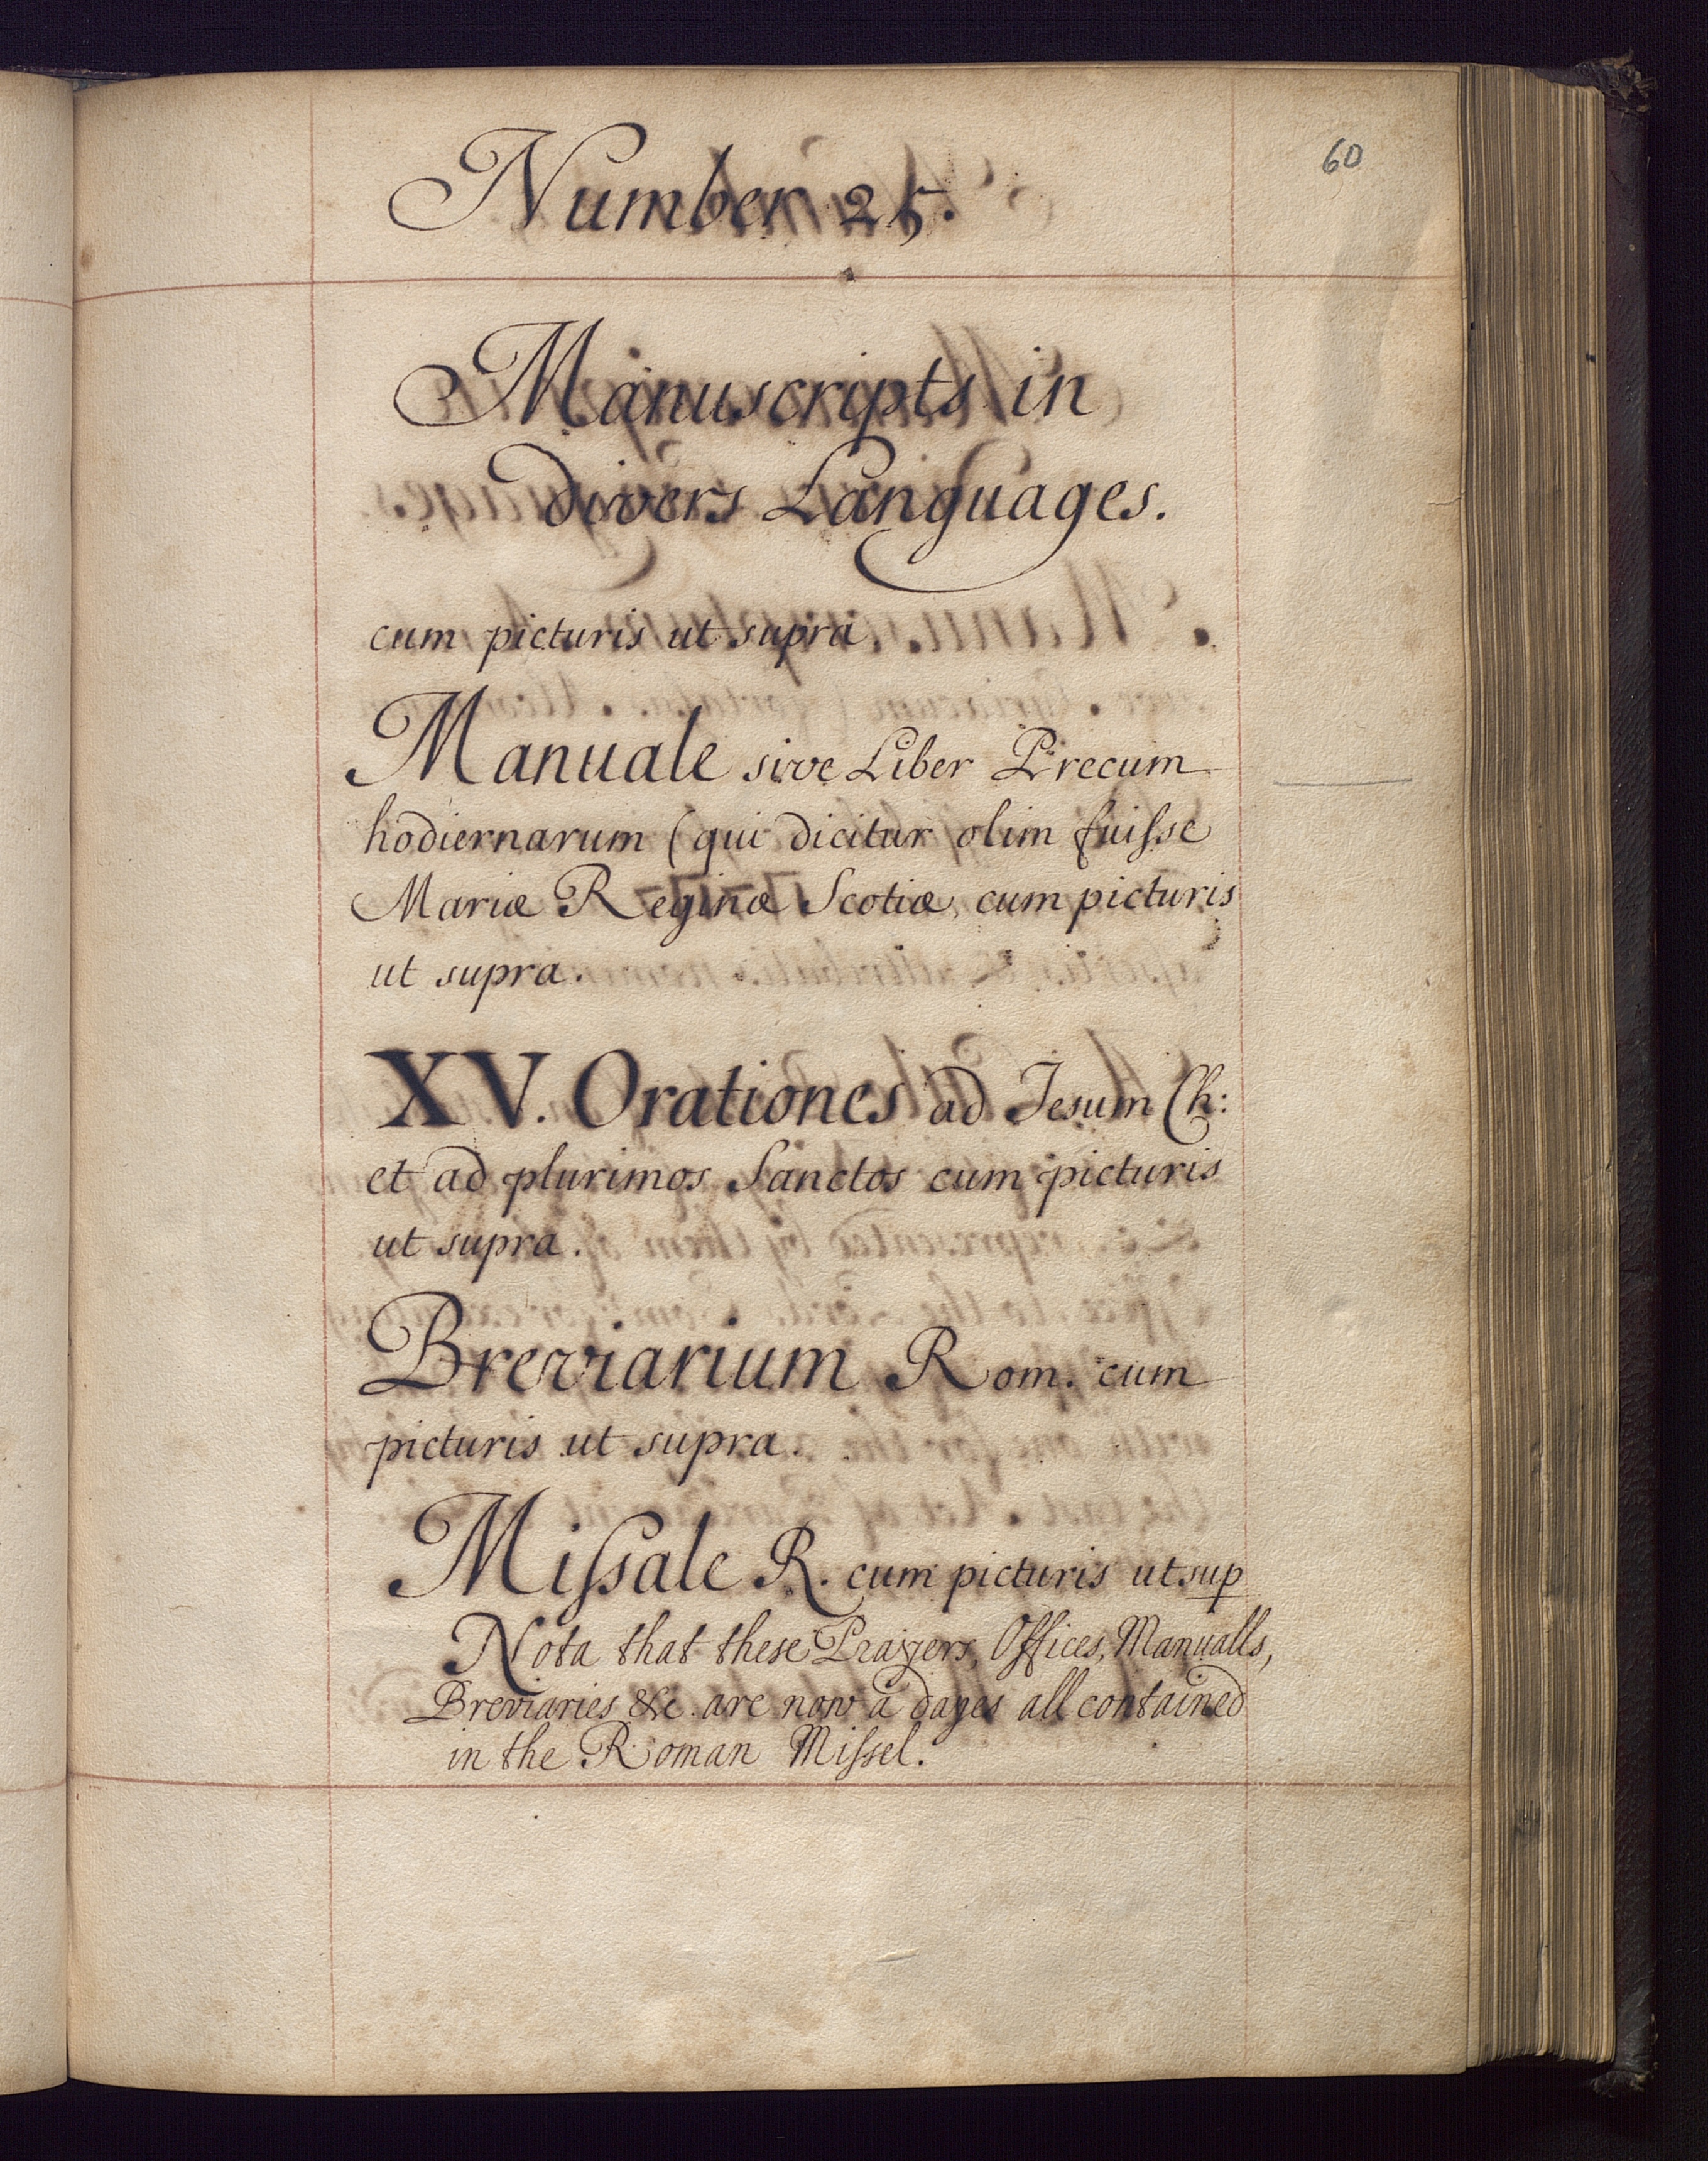 60
Number 25.
Manuscripts in
divers Languages.
cum picturis ut supra.
Manuale sive Liber Precum
hodiernarum (qui dicitur olim fuiſse
Mariæ Reginæ Scotiæ, cum picturis
ut supra.
XV. Orationes ad Jesum Ch:
et ad plurimos Sanctos cum picturis
ut supra.
Breviarium Rom. cum
picturis ut supra.
Miſsale R. cum picturis ut sup
Nota that these Prayers, Offices, Manualls,
Breviaries &c. are now a dayes all contained
in the Roman Miſsel.